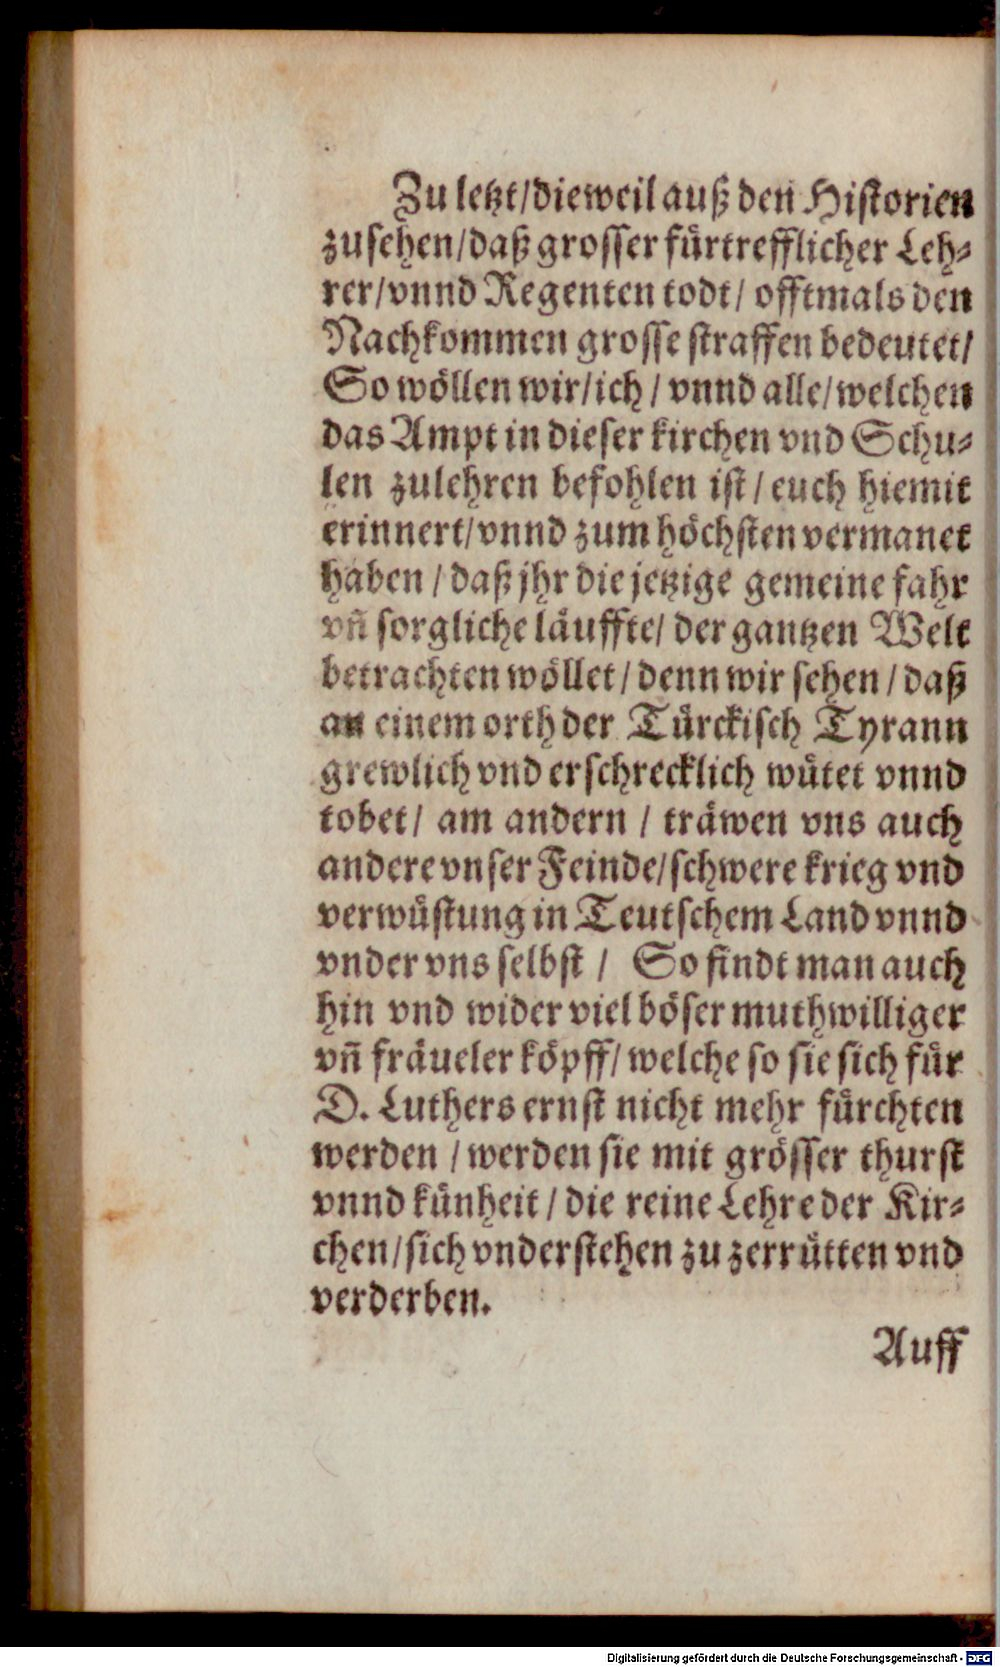 Zu letzt/dieweil auß den Historien
zusehen/daß grosser fürtrefflicher Leh-
rer/vnnd Regenten todt/ offtmals den
Nachkommen grosse straffen bedeutet/
So wöllen wir/ich/ vnnd alle/welchen
das Ampt in dieser kirchen vnd Schu-
len zulehren befohlen ist/ euch hiemit
erinnert/vnnd zum höchsten vermanet
haben / daß jhr die jetzige gemeine fahr
vñ sorgliche läuffte/ der gantzen Welt
betrachten wöllet/ denn wir sehen / daß
an einem orth der Türckisch Tyrann
grewlich vnd erschrecklich wütet vnnd
tobet/ am andern / träwen vns auch
andere vnser Feinde/schwere krieg vnd
verwüstung in Teutschem Land vnnd
vnder vns selbst / So findt man auch
hin vnd wider viel böser muthwilliger
vñ fräueler köpff/ welche so sie sich für
D. Luthers ernst nicht mehr fürchten
werden / werden sie mit grösser thurst
vnnd künheit / die reine Lehre der Kir-
chen/sich vnderstehen zu zerrütten vnd
verderben.
Auff
Digitalisierung gefördert durch die Deutsche Forschungsgemeinschaft - DFG